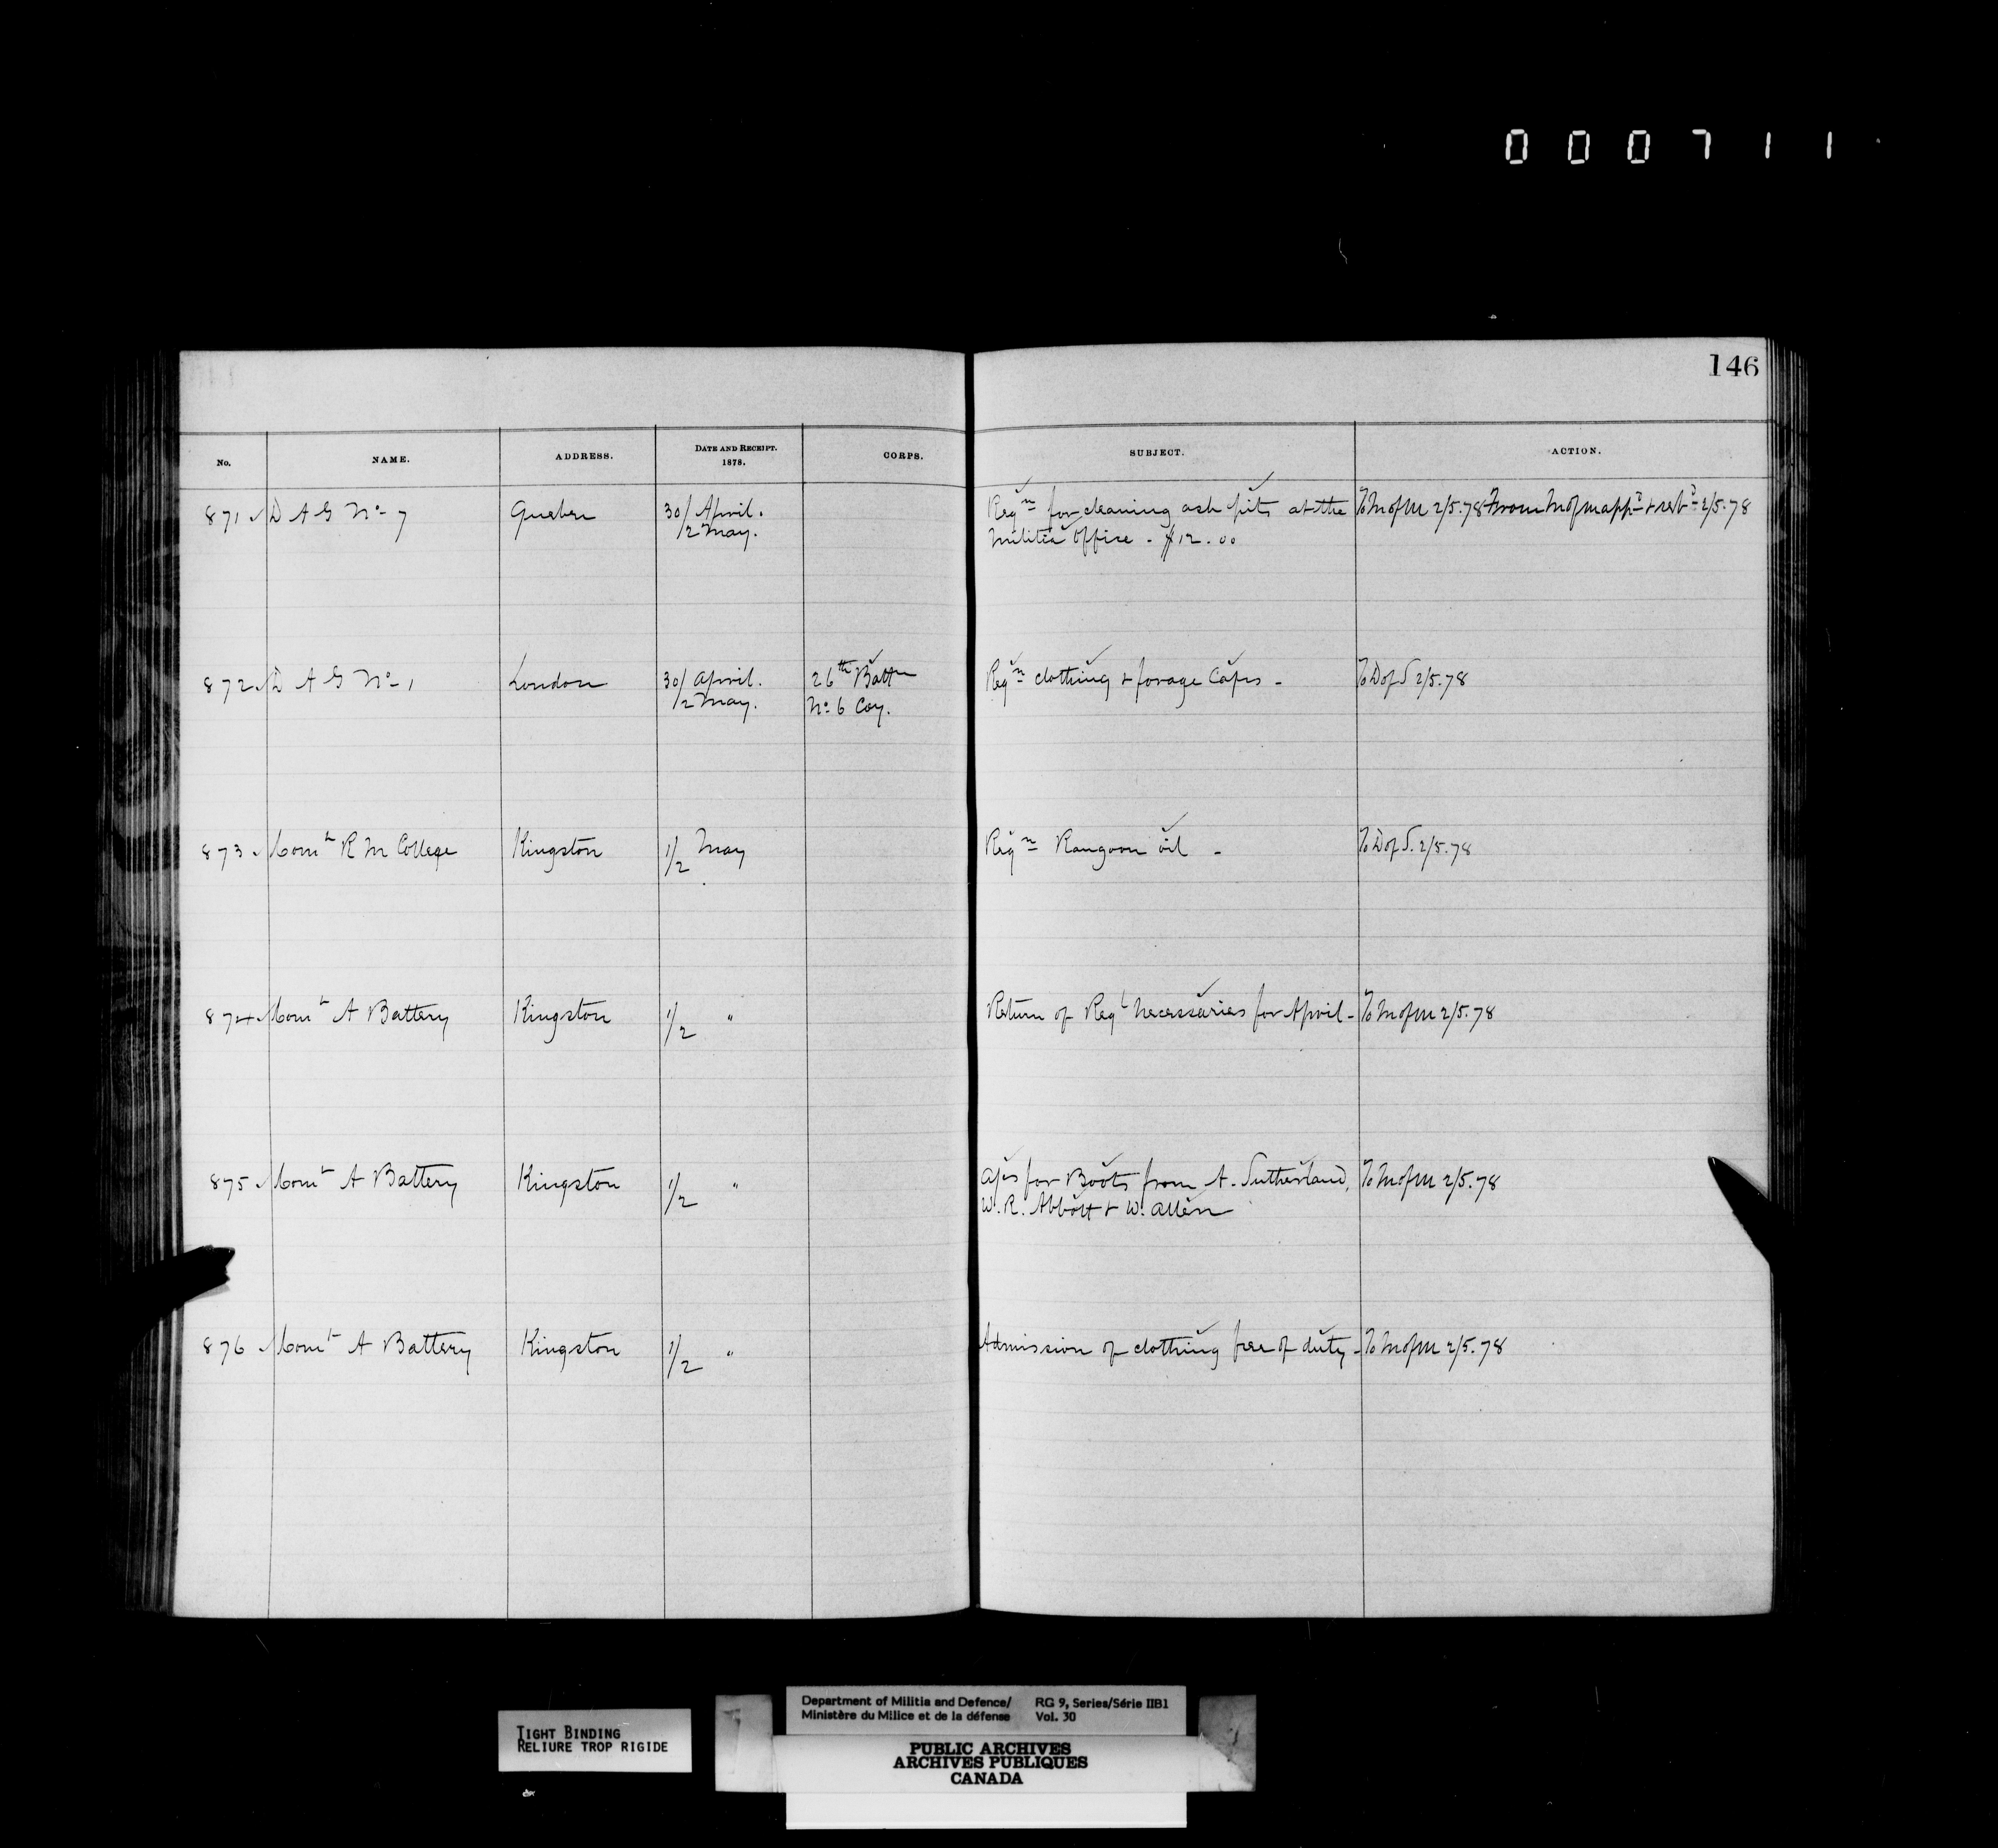 000711
146
No. NAME. ADDRESS. DATE AND RECEIPT. 1878. CORPS. SUBJECT. ACTION.
871 D A G No 7 Quebec 30/ April. Reqn for cleaning ash pits at the To M of M 2/5.78 From M of M appd & retd 2/5.78
/2 May. Militia Office - $12.00
872 D A G No 1 London 30/ April. 26th Battn Reqn clothing & forage Caps - To D of S 2/5.78
/2 May. No 6 Coy.
873 Comt R M College Kingston 1/2 May Reqn Rangoon oil - To D of S. 2/5.78
874 Comt A Battery Kingston 1/2 " Return of Regl Necessaries for April - To M of M 2/5.78
875 Comt A Battery Kingston 1/2 " a/cs for Boots from A. Sutherland, To M of M 2/5.78
W. R. Abbott & W. Allen
876 Comt A Battery Kingston 1/2 " Admission of clothing free of duty - To M of M 2/5.78
TIGHT BINDING
RELIURE TROP RIGIDE
Department of Militia and Defence/ RG 9, Series/Série IIB1
Ministère du Milice et de la défense Vol. 30
PUBLIC ARCHIVES
ARCHIVES PUBLIQUES
CANADA